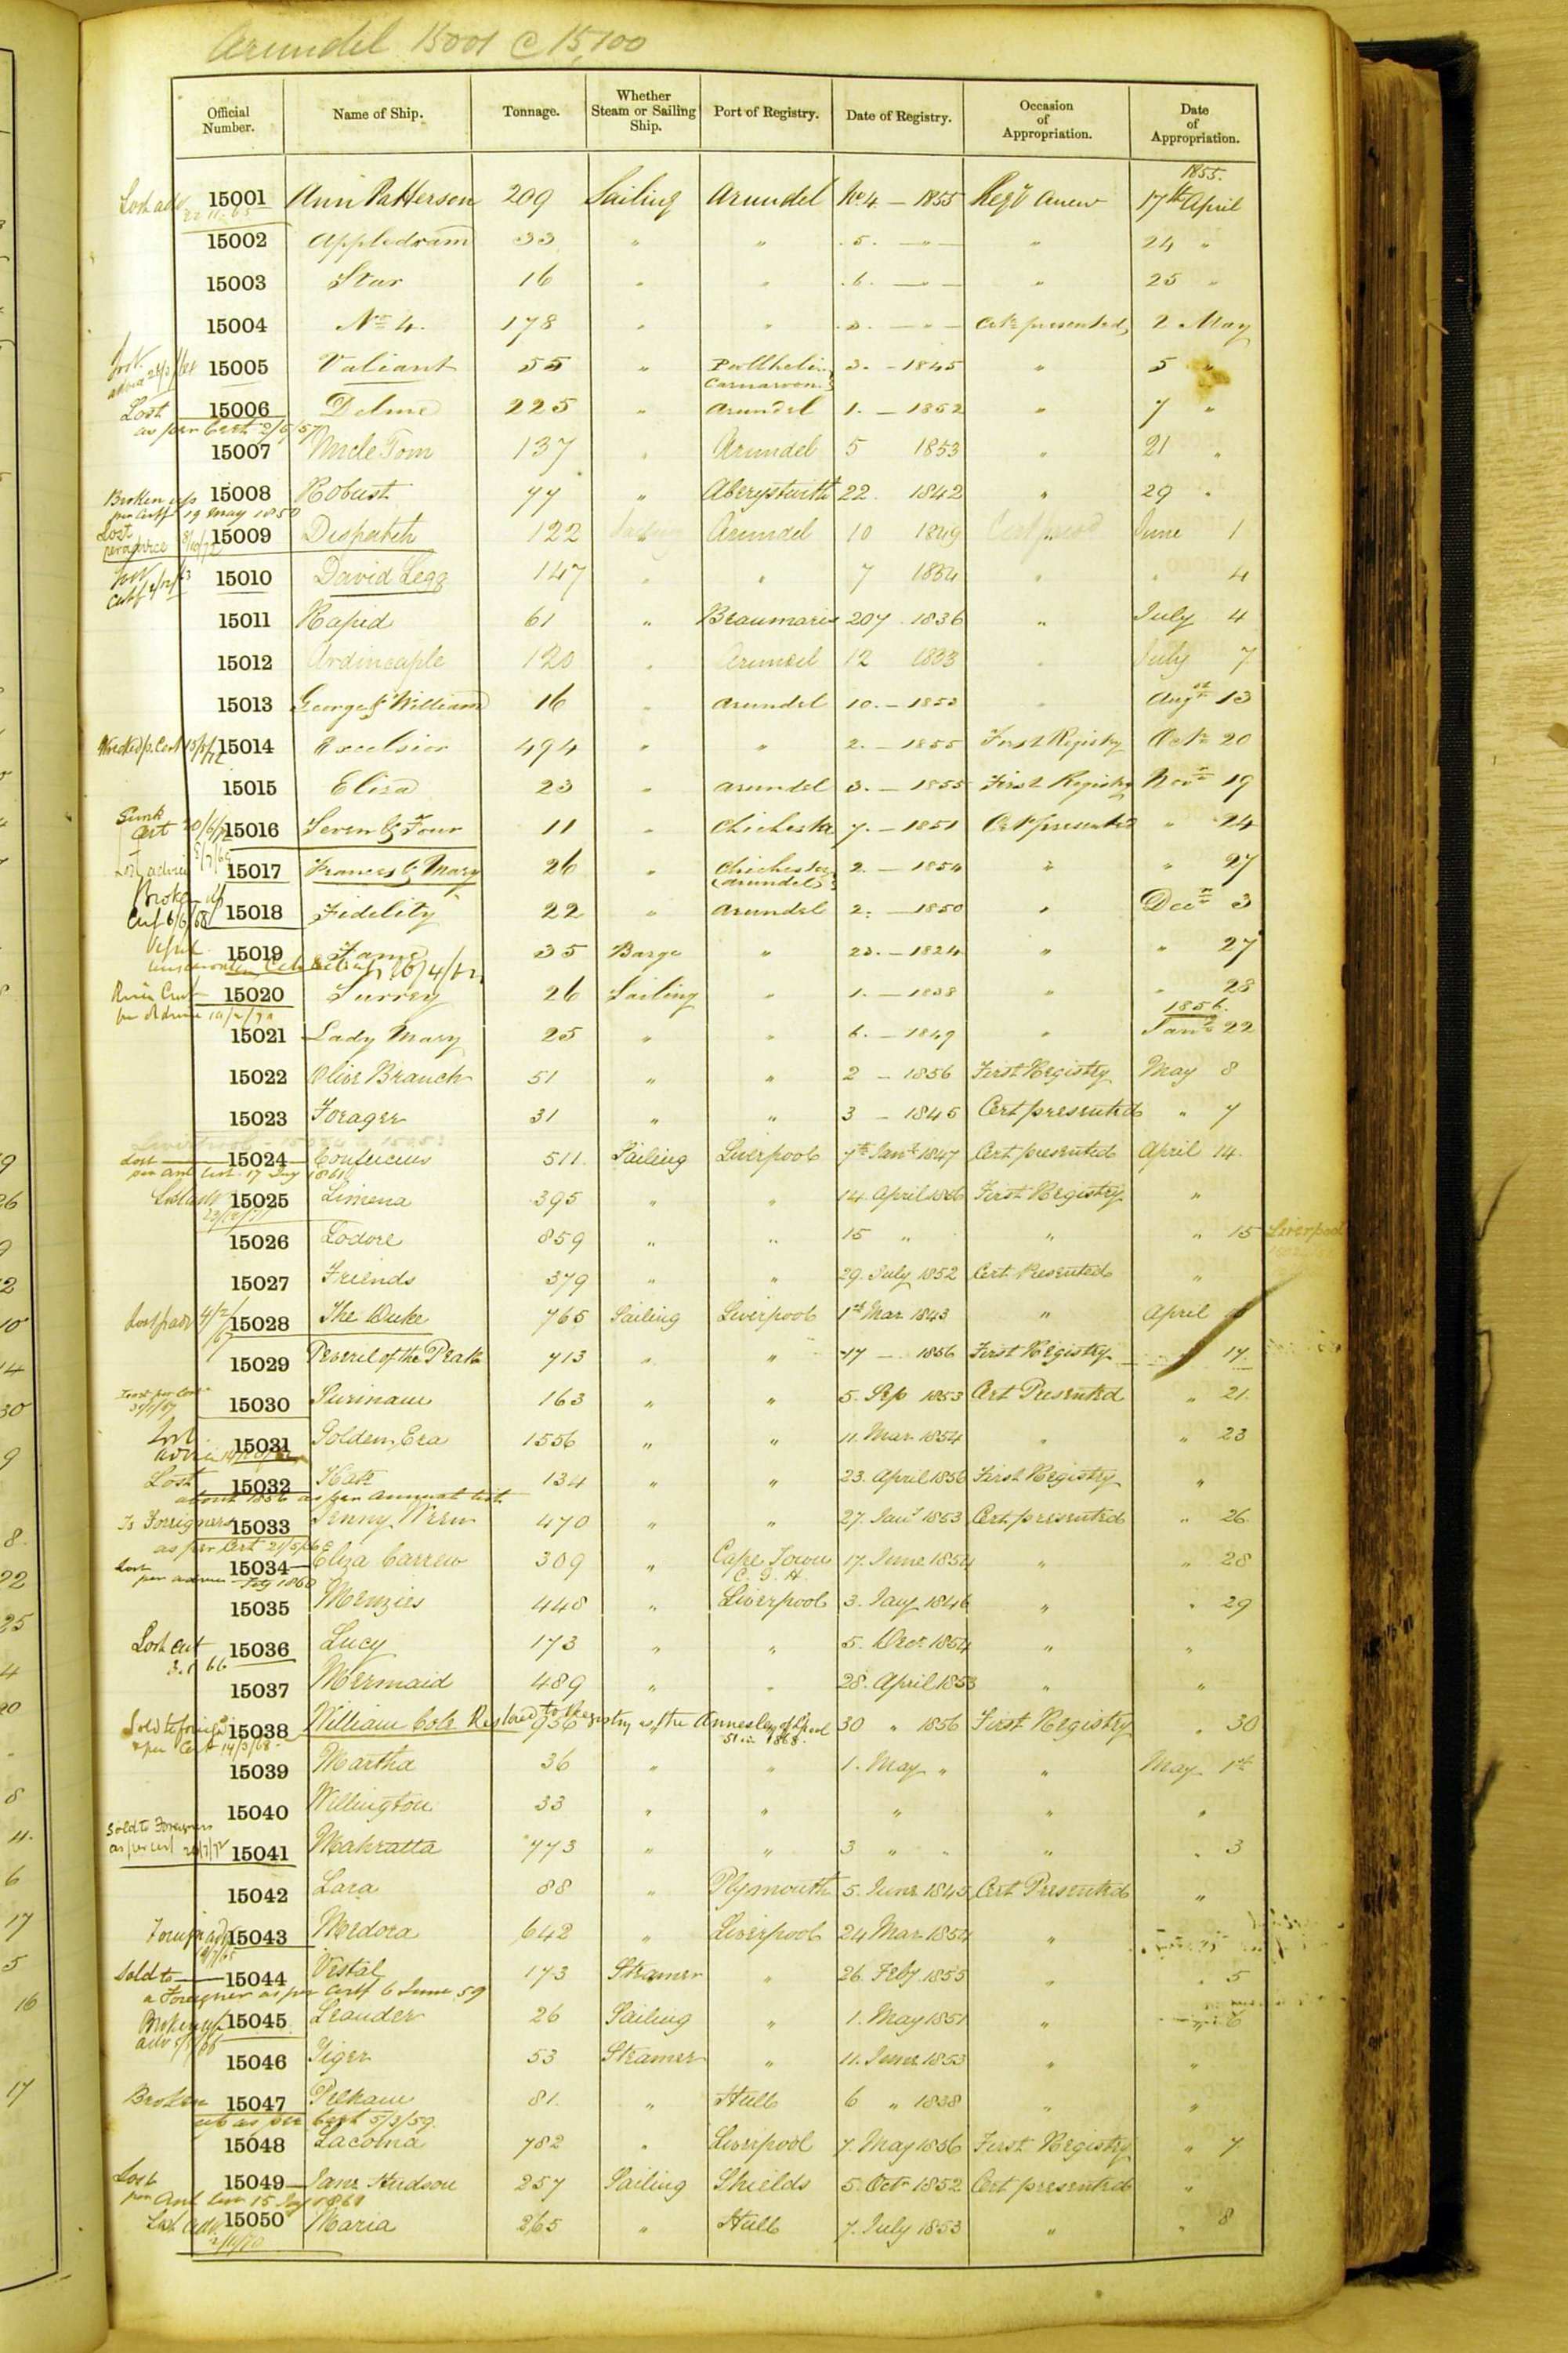 Arundel 15001 @ 15,100
Official Number. Name of Ship. Tonnage. Whether Steam or Sailing Ship. Port of Registry. Date of Registry. Occasion of Appropriation. Date of Appropriation.
1855.
15001 Ann Patterson 209 Sailing Arundel No 4 — 1855 Regd Anew 17th April
15002 Appledram 33 " " 5. — " — " 24 "
15003 Star 16 " " 6. — " — " 25 "
15004 No 4. 178 " " 3. — " — Cert presented 2 May
Lost advice
15005 Valiant 55 " Pwllheli Carnarvon 3. - 1845 " 5 "
Lost 15006 Delmé 225 " Arundel 1. — 1852 " 7 "
as per Cert 2/6/57
15007 Uncle Tom 137 " Arundel 5 1853 " 21 "
Broken up 15008 Robust 77 " Aberystwith 22. 1842 " 29 "
per Certf 19 May 1850
Lost per advice 15009 Despatch 122 Sailing Arundel 10 1849 June 1
15010 David Legg 147 " " 7 1834 " " 4
15011 Rapid 61 " Beaumaris 207 1836 " July 4
15012 Ardincaple 120 " Arundel 12 1833 " July 7
15013 George & William 16 " Arundel 10. — 1853 " Augst 13
Wrecked p. Cert 15014 Excelsior 494 " " 2. — 1855 First Registry Octr 20
15015 Eliza 23 " Arundel 3. — 1855 First Registry Novr 19
Sunk Cert 15016 Seven & Four 11 " Chichester 7. — 1851 Cert presented " 24
Lost advice 15017 Frances & Mary 26 " Chichester (Arundel) 2. — 1854 " " 27
Broken up Cert 6/6/68 15018 Fidelity 22 " Arundel 2. — 1850 " Decr 3
15019 Fame 35 Barge " 23. — 1824 " " 27
15020 Surrey 26 Sailing " 1. — 1838 " " 28
1856.
15021 Lady Mary 25 " " 6. — 1849 " Jany 22
15022 Olive Branch 51 " " 2 — 1856 First Registry May 8
15023 Forager 31 " " 3 — 1845 Cert presented " 7
Liverpool - 15024 to 15053
Lost — 15024 — Confucius 511. Sailing Liverpool 7th Jany 1847 Cert presented April 14.
15025 Limena 395 " " 14. April 1856 First Registry "
15026 Lodore 859 " " 15 " " " 15 Liverpool
15027 Friends 379 " " 29. July 1852 Cert Presented "
15028 The Duke 765 Sailing Liverpool 1st Mar 1843 " April
15029 Peveril of the Peak 713 " " 17 — 1856 First Registry 17.
15030 Surinam 163 " " 5. Sep 1853 Cert Presented " 21.
Lost advice 15031 Golden Era 1556 " " 11. Mar 1854 " " 23
Lost 15032 Kate 134 " " 23. April 1856 First Registry "
about 1856 as per Annual List
To Foreigners 15033 Jenny Wren 470 " " 27. Jany 1853 Cert presented " 26
as per Cert
Lost 15034 — Eliza Carrew 309 " Cape Town C. G. H. 17. June 1854 " " 28
per advice Feby 1860
15035 Menzies 448 " Liverpool 3. Jany 1846 " " 29
Lost cert 15036 Lucy 173 " " 5. Decr 1854 " "
15037 Mermaid 489 " " 28. April 1853 " "
15038 William Cole 956 Restored to Registry as the Annesley of Lpool 51 in 1868. 30 " 1856 First Registry " 30
per Cert 14/3/68
15039 Martha 36 " " 1. May " " May 1st
15040 Wellington 33 " " " " "
Sold to Foreigners as per cert 15041 Mahratta 773 " " 3 " " " " 3
15042 Lara 88 " Plymouth 5. June 1845 Cert Presented "
15043 Medora 642 " Liverpool 24 Mar 1854 "
Sold to — 15044 Vestal 173 Steamer " 26. Feby 1855 " 5
a Foreigner as per Certf 6 June 59
Broken up 15045 Leander 26 Sailing " 1. May 1851 " " 6
15046 Tiger 53 Steamer " 11. June 1853 " "
Broken 15047 Pelham 81. " Hull 6 " 1838 " "
up as per Cert 5/3/59.
15048 Lacoma 782 " Liverpool 7. May 1856 First Registry " 7
Lost 15049 — Jane Hudson 257 Sailing Shields 5. Octr 1852 Cert presented "
Lost adv. 15050 Maria 265 " Hull 7. July 1853 " " 8